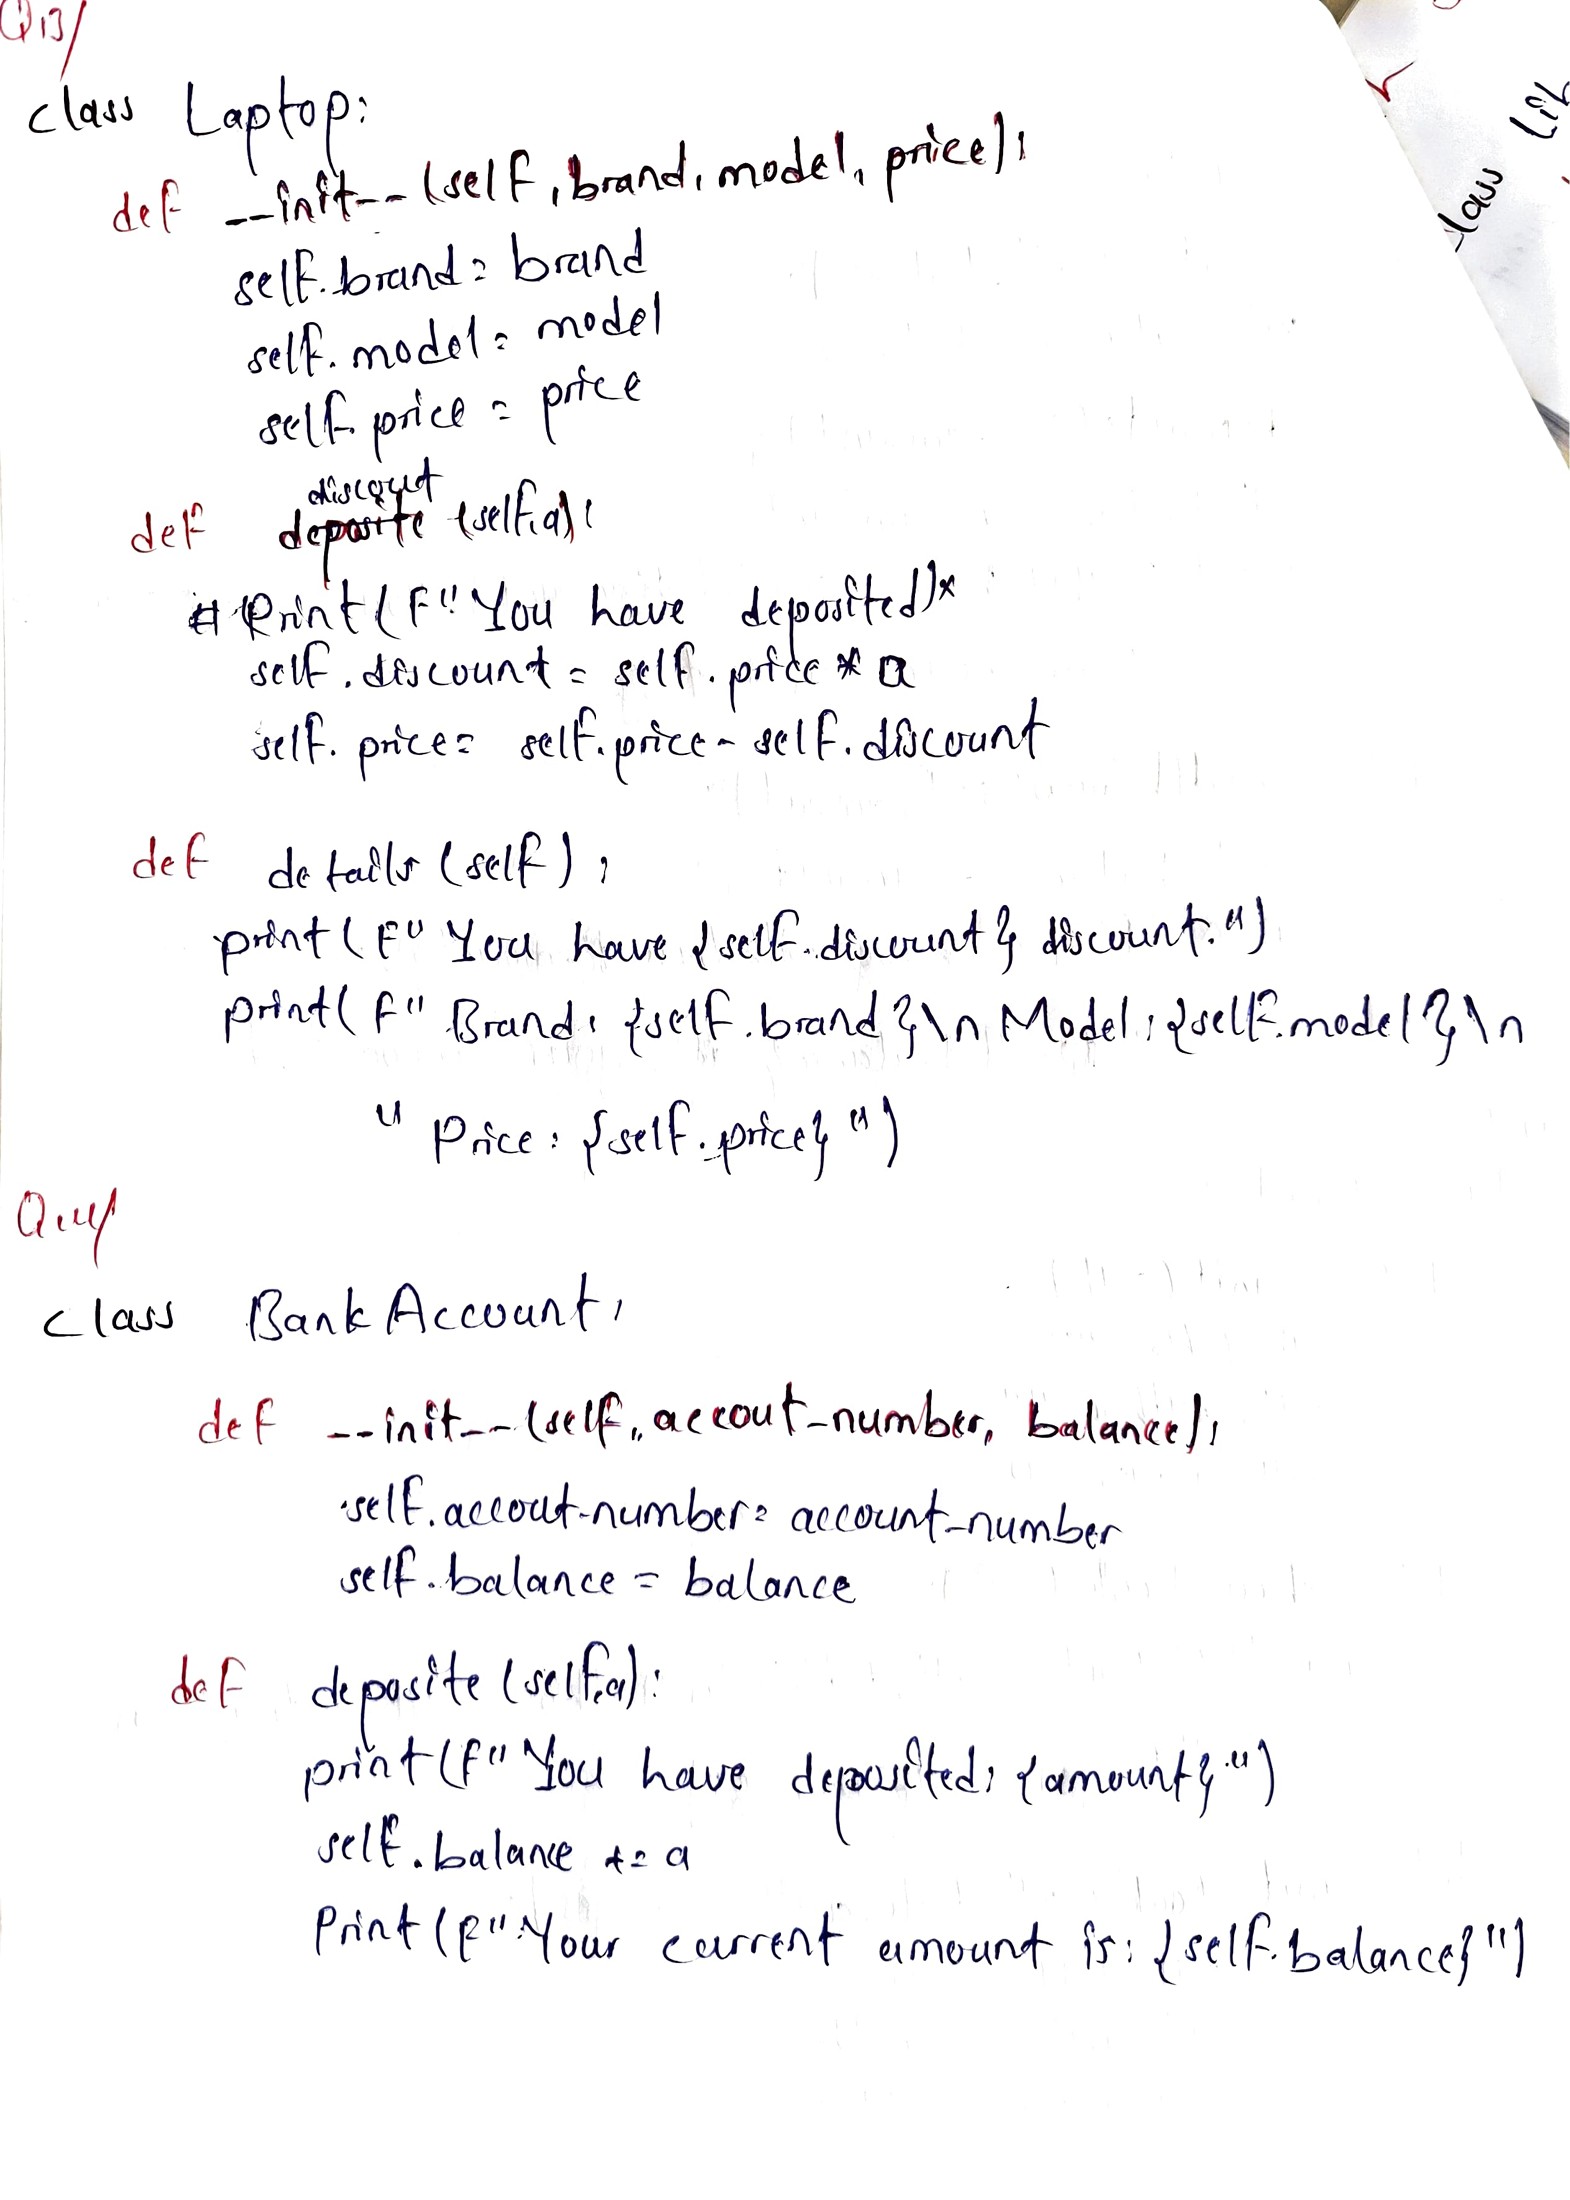 Q13/
class Laptop:
def __init__(self, brand, model, price):
self.brand = brand
self.model = model
self.price = price
discout
def deposite (self,a):
# Print(F"You have deposited)*
self.discount = self.price * a
self.price = self.price - self.discount
def details (self):
print(F"You have {self.discount} discount.")
print(f"Brand: {self.brand}\n Model: {self.model}\n
" Price: {self.price}")
Q.14/
class BankAccount:
def __init__(self, accout_number, balance):
self.accout_number = account_number
self.balance = balance
def deposite (self,a):
print(f"You have deposited: {amount}.")
self.balance += a
Print(F"Your current amount is: {self.balance}")
lass Lib